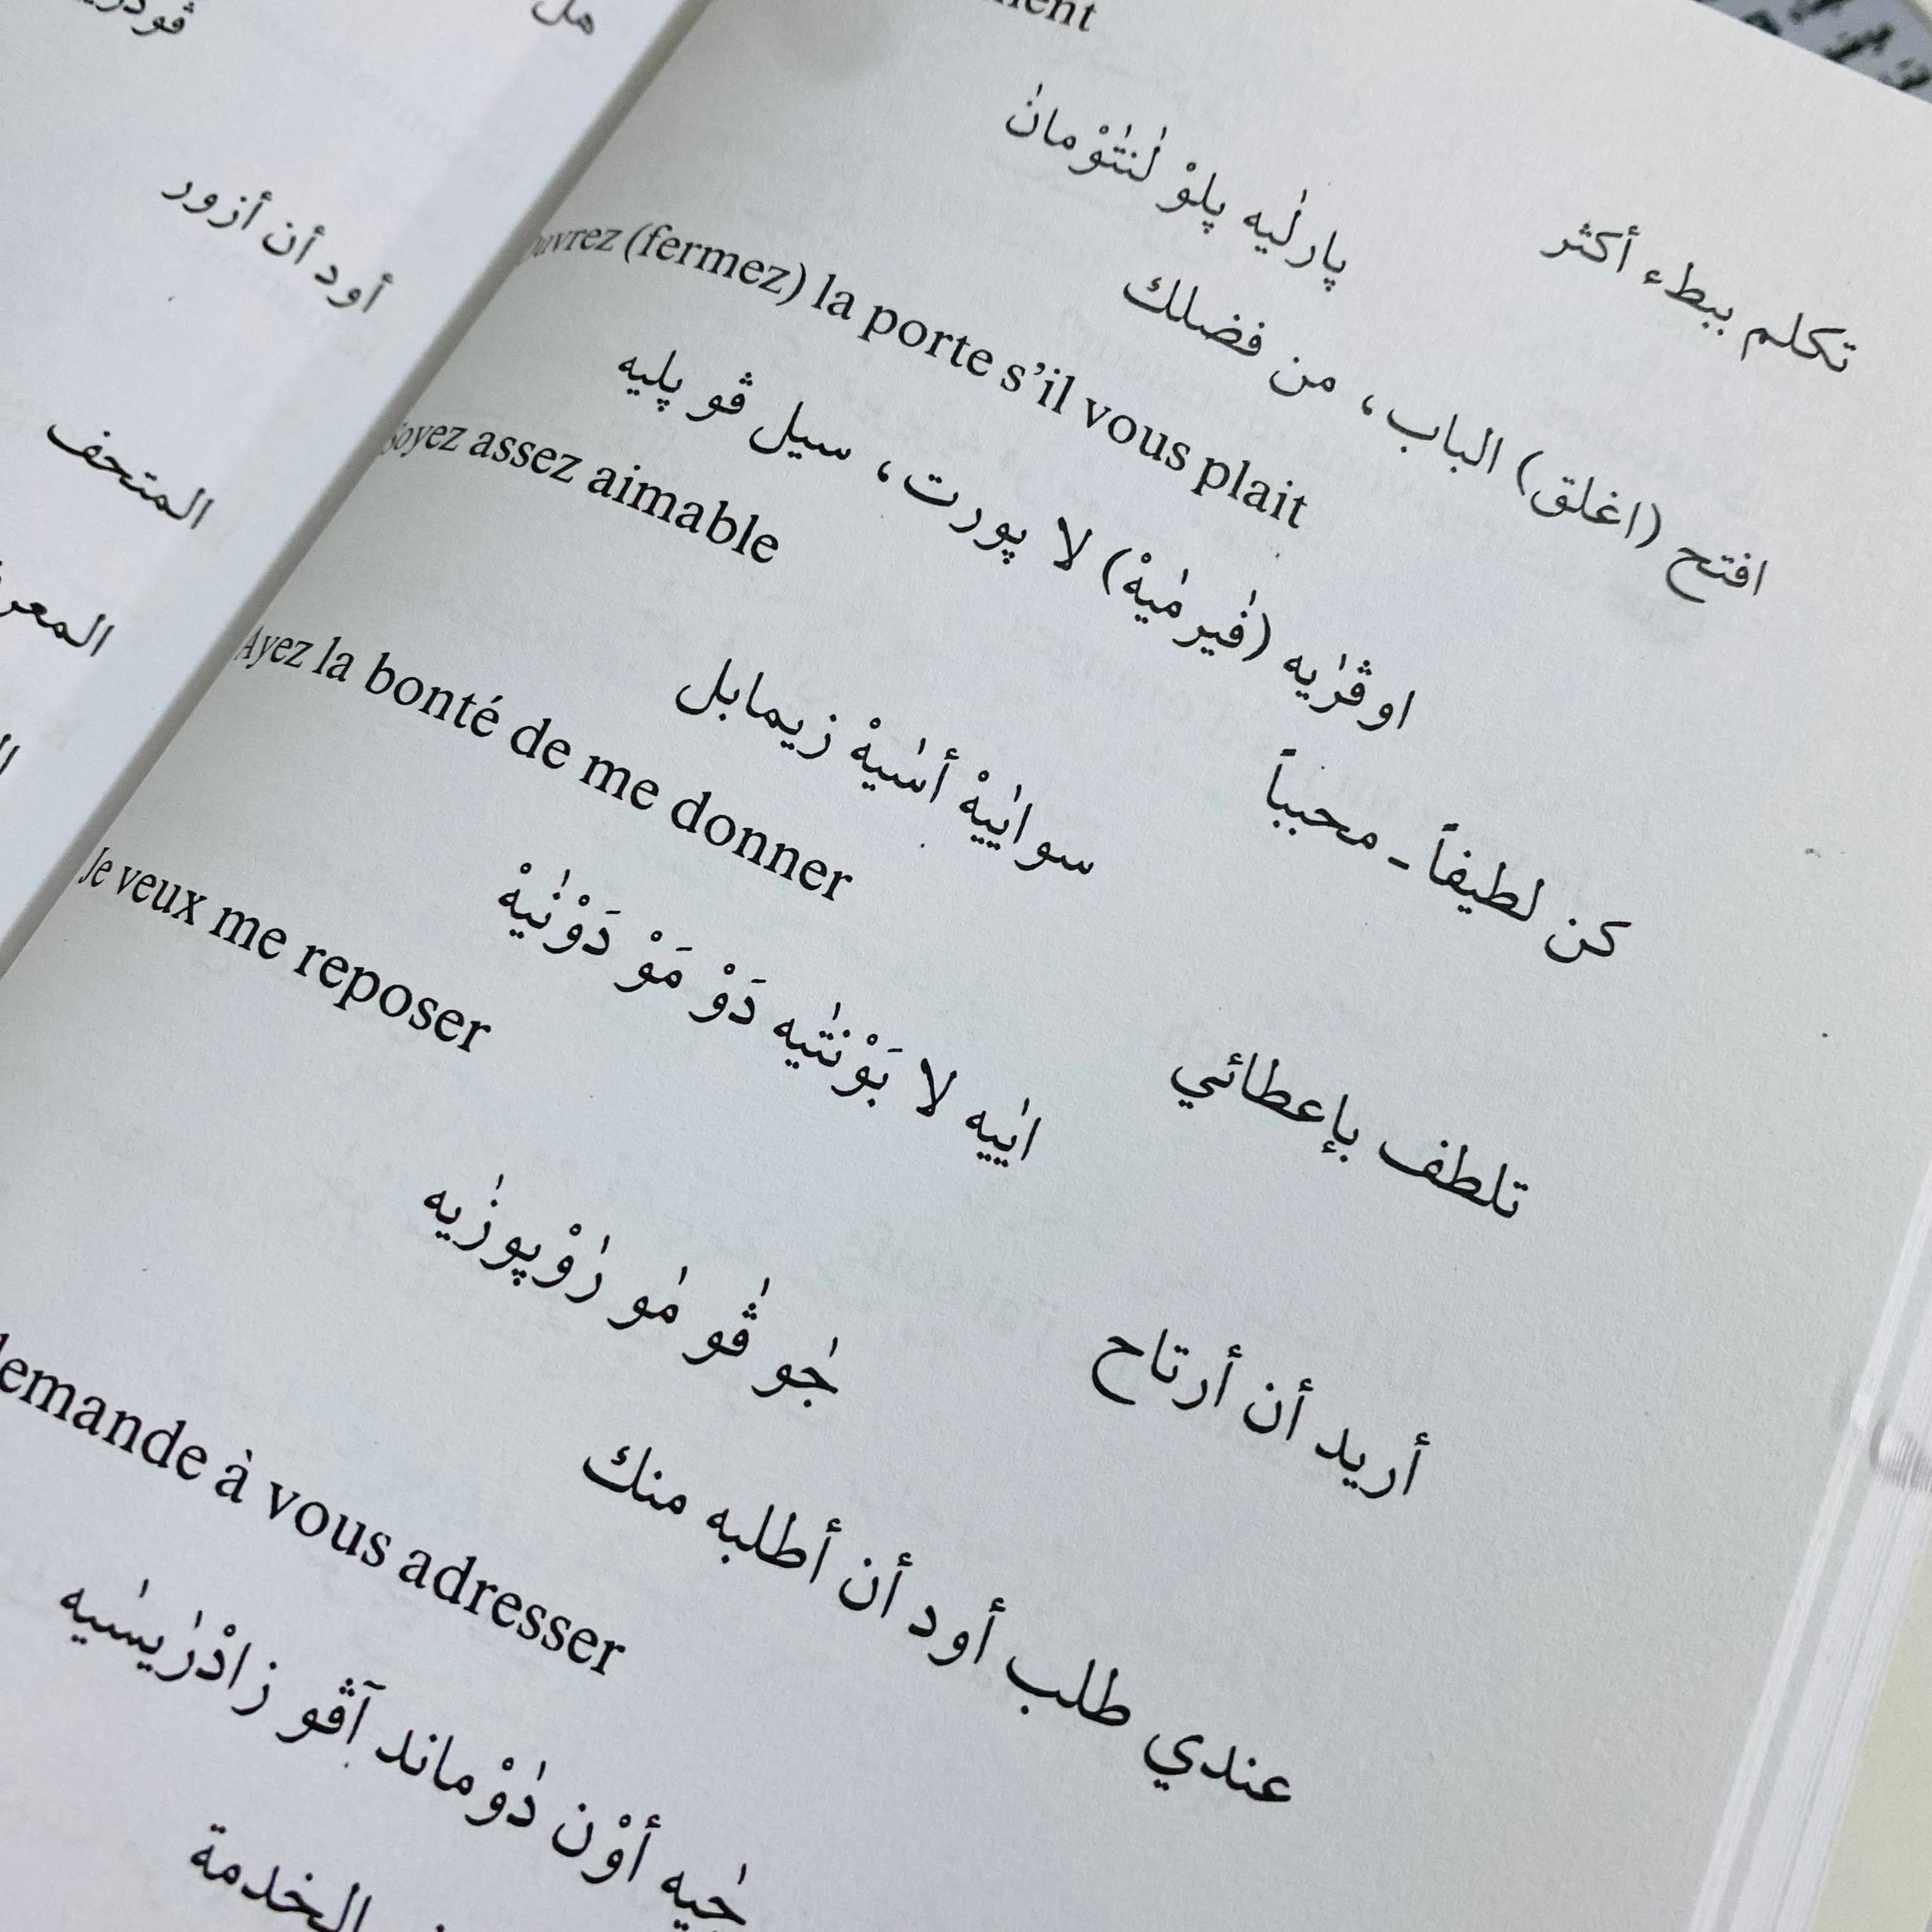 هل
أود أن أزور
المتحف
تكلم ببطء أكثر
پارلٰيه پلوْ لٰنتٰوْمانٰ
افتح (اغلق) الباب، من فضلك
(fermez) la porte s’il vous plait
اوڤرٰيه (ڤٰيرمٰيهْ) لا پورت، سيل ڤو پليه
كن لطيفاً ـ محبباً
Soyez assez aimable
سوايٰيهْ أسٰيهْ زيمابل
تلطف بإعطائي
Ayez la bonté de me donner
ايٰيه لا بَوْنتٰيه دَوْ مَوْ دَوْنٰيهْ
أريد أن أرتاح
Je veux me reposer
جٰو ڤٰو مٰو رٰوْپوزٰيه
عندي طلب أود أن أطلبه منك
à vous adresser
جٰيه أوْن دٰوْماند آڤو زادْرٰيسٰيه
الخدمة